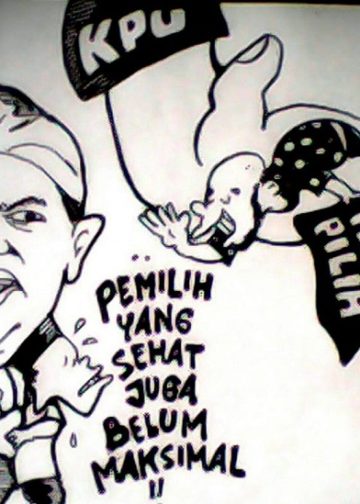 KPU
PILIH
PEMILIH
YANG
SEHAT
JUGA
BELUM
MAKSIMAL
!!